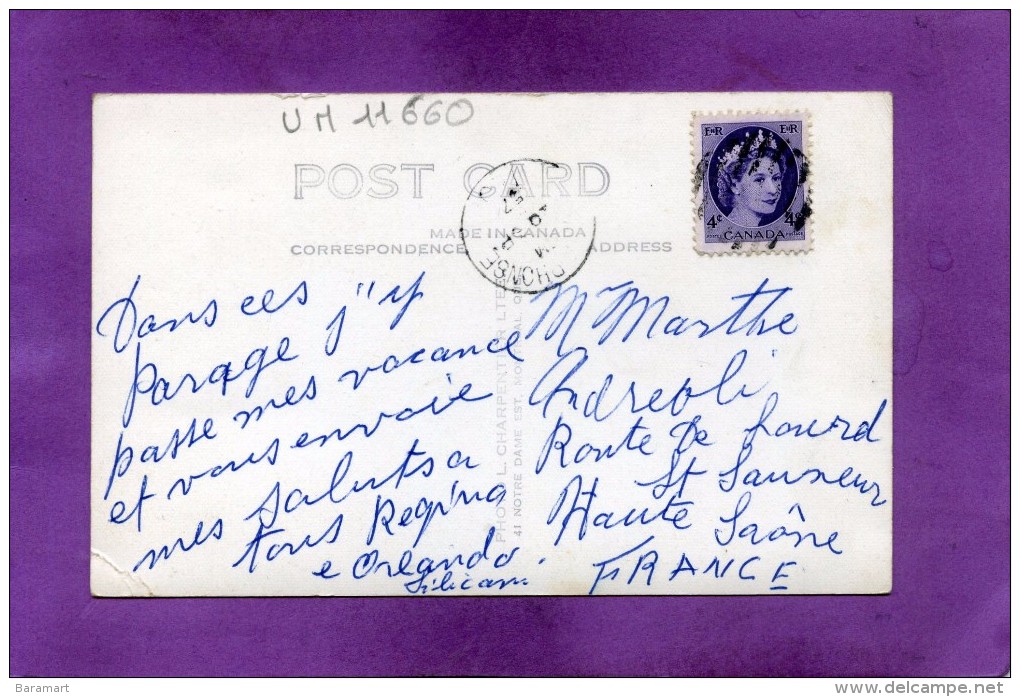 UM 11660
POST CARD
MADE IN CANADA
CORRESPONDENCE ADDRESS
E R E R
4¢ 4¢
POSTES CANADA POSTAGE
PHONSE
PHOTO L. CHARPENTIER LTEE
41 NOTRE DAME EST, MONTREAL
Dans ces j'y
parage
passe mes vacance
et vous envoie
mes saluts a
tous Regina
e Orlando
Mr Marthe
Andreoli
Route de Lourd
St Sauveur
Haute Saône
FRANCE
Baramart
www.delcampe.net